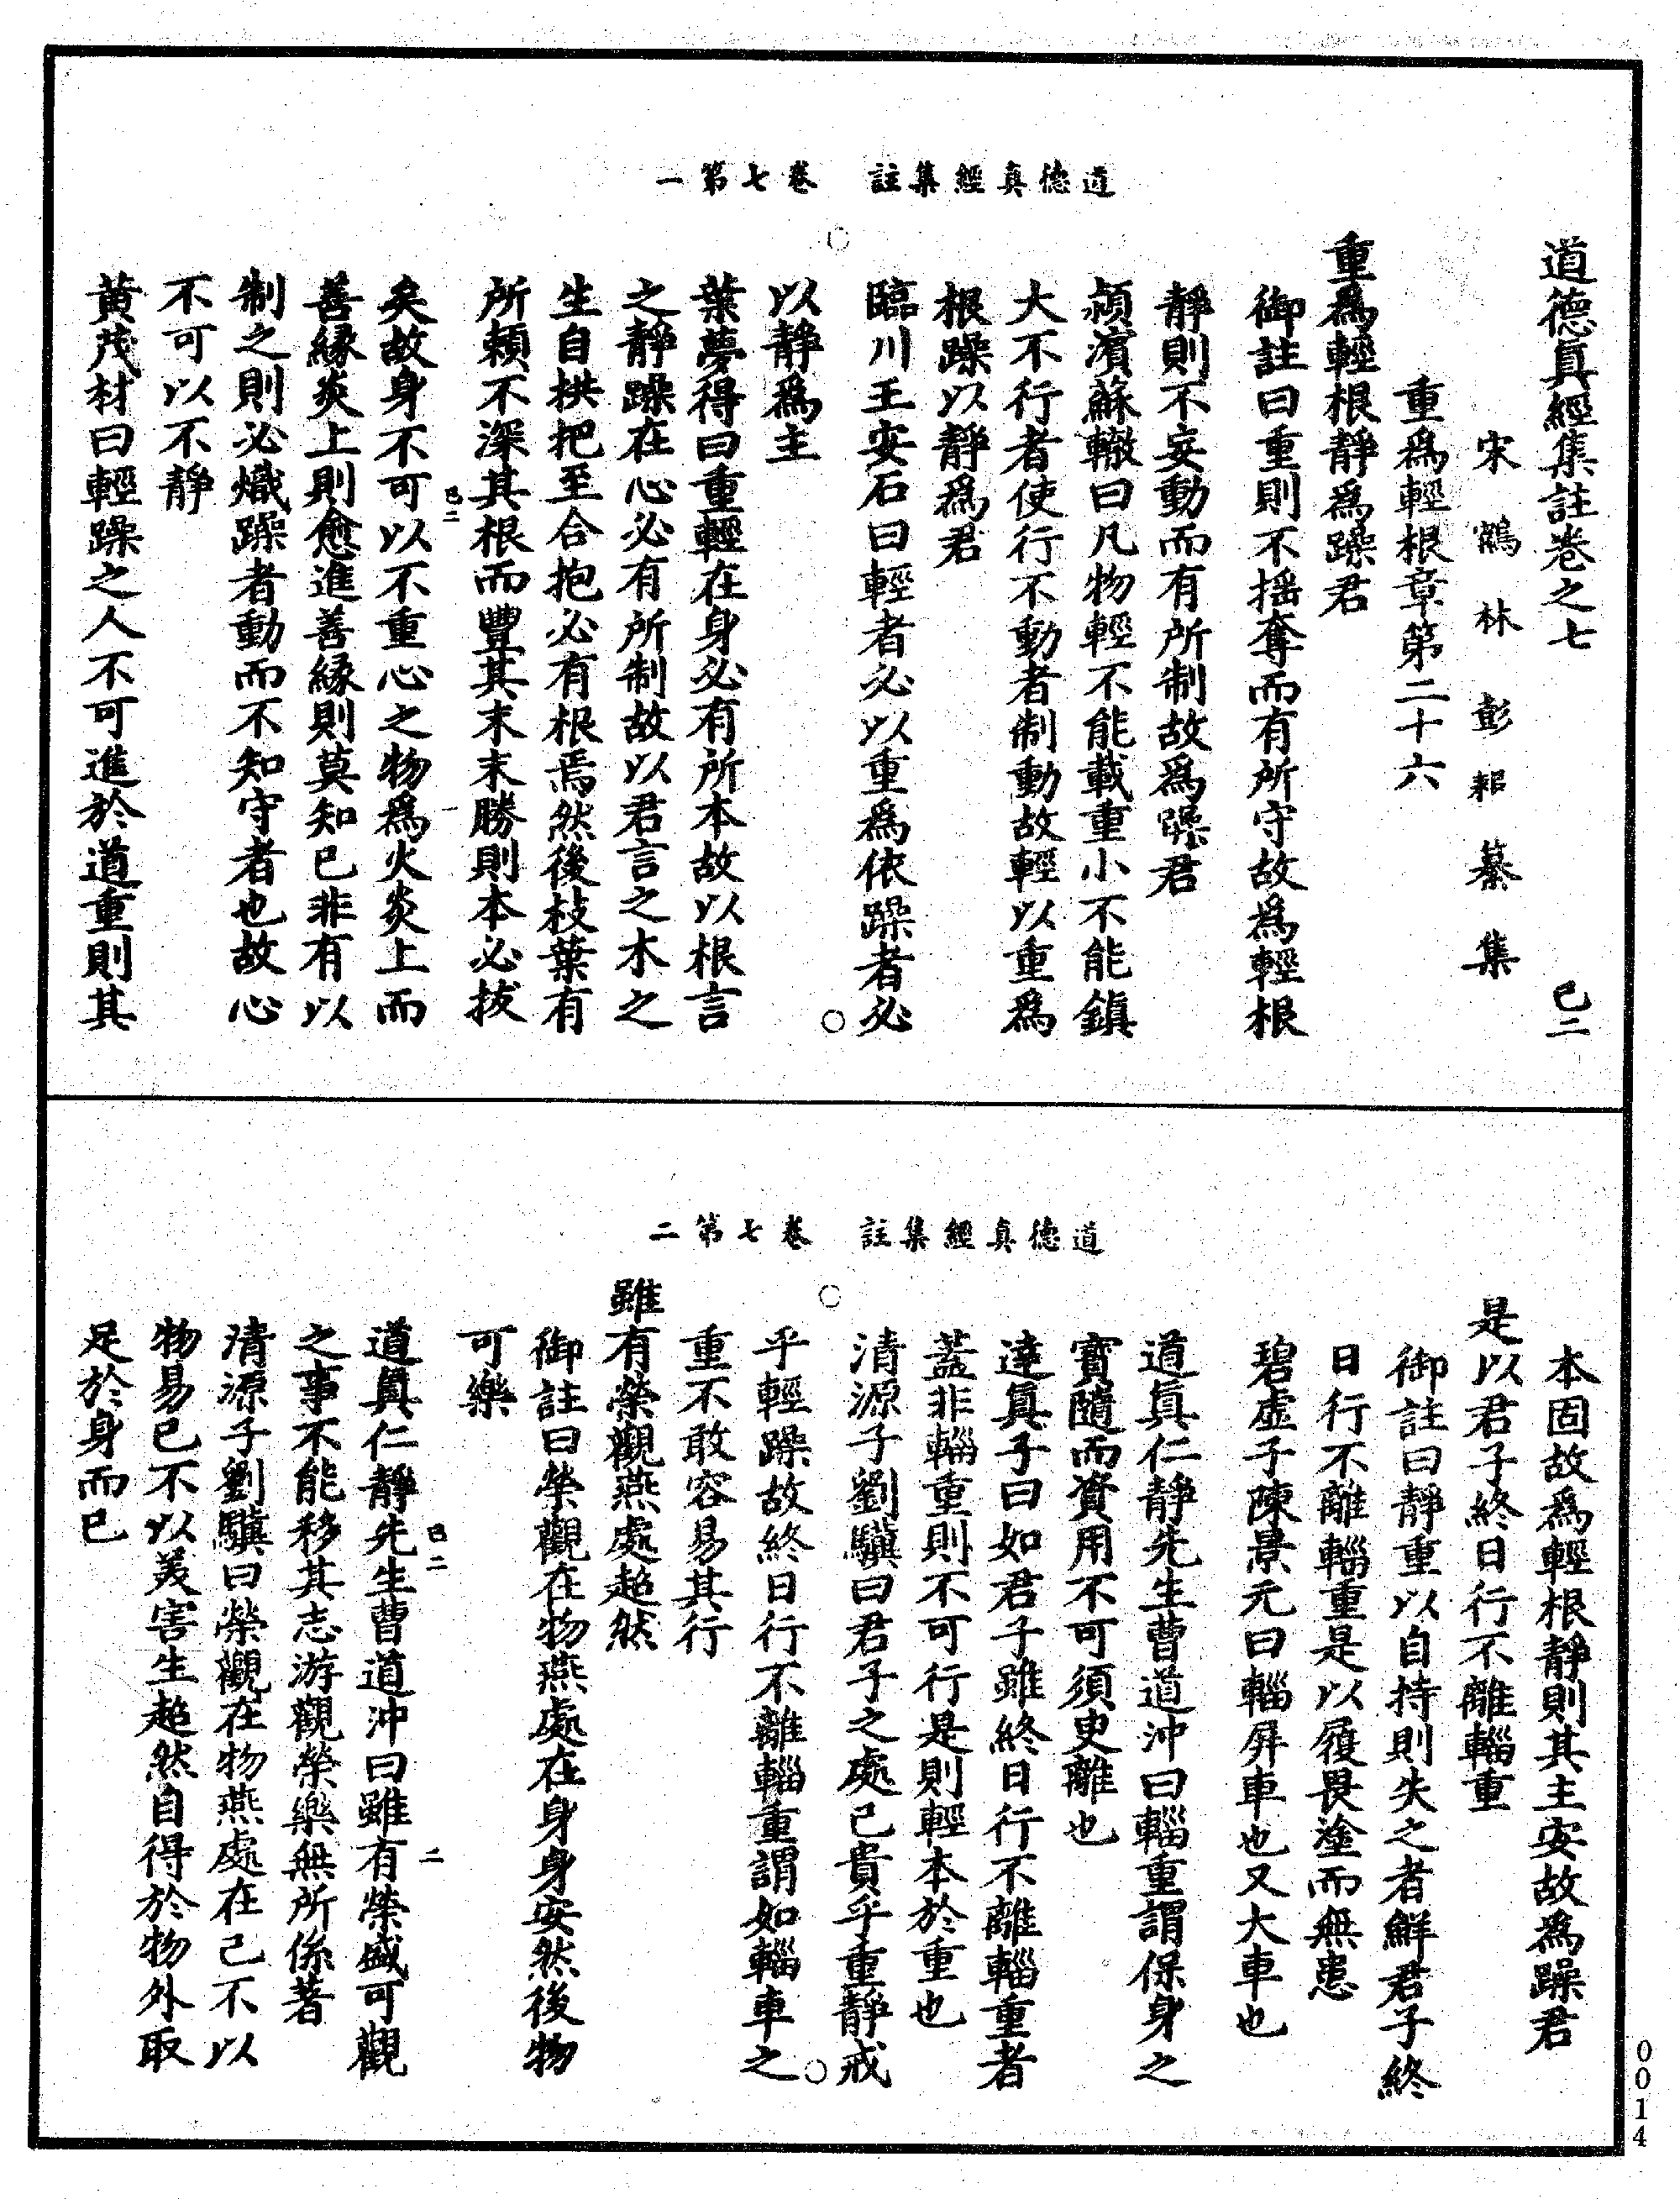 道德真經集註　卷七第一
道德眞經集註卷之七　己二
宋鶴林彭耜纂集
重爲輕根章第二十六
重爲輕根靜爲躁君
御註曰重則不搖奪而有所守故爲輕根
靜則不妄動而有所制故爲躁君
潁濱蘇轍曰凡物輕不能載重小不能鎭
大不行者使行不動者制動故輕以重爲
根躁以靜爲君
臨川王安石曰輕者必以重爲依躁者必
以靜爲主
葉夢得曰重輕在身必有所本故以根言
之靜躁在心必有所制故以君言之木之
生自拱把至合抱必有根焉然後枝葉有
所賴不深其根而豐其末末勝則本必拔
矣故身不可以不重心之物爲火炎上而
己二
一
善緣炎上則愈進善緣則莫知已非有以
制之則必熾躁者動而不知守者也故心
不可以不靜
黄茂材曰輕躁之人不可進於道重則其
道德真經集註　卷七第二
本固故爲輕根靜則其主安故爲躁君
是以君子終日行不離輜重
御註曰靜重以自持則失之者鮮君子終
日行不離輜重是以履畏塗而無患
碧虛子陳景元曰輜屏車也又大車也
道眞仁靜先生曹道沖曰輜重謂保身之
寶隨而資用不可須臾離也
達眞子曰如君子雖終日行不離輜重者
蓋非輜重則不可行是則輕本於重也
清源子劉驥曰君子之處己貴乎重靜戒
乎輕躁故終日行不離輜重謂如輜車之
重不敢容易其行
雖有榮觀燕處超然
御註曰榮觀在物燕處在身身安然後物
可樂
道眞仁靜先生曹道沖曰雖有榮盛可觀
己二
二
之事不能移其志游觀榮樂無所係著
清源子劉驥曰榮觀在物燕處在己不以
物易己不以美害生超然自得於物外取
足於身而已
0014